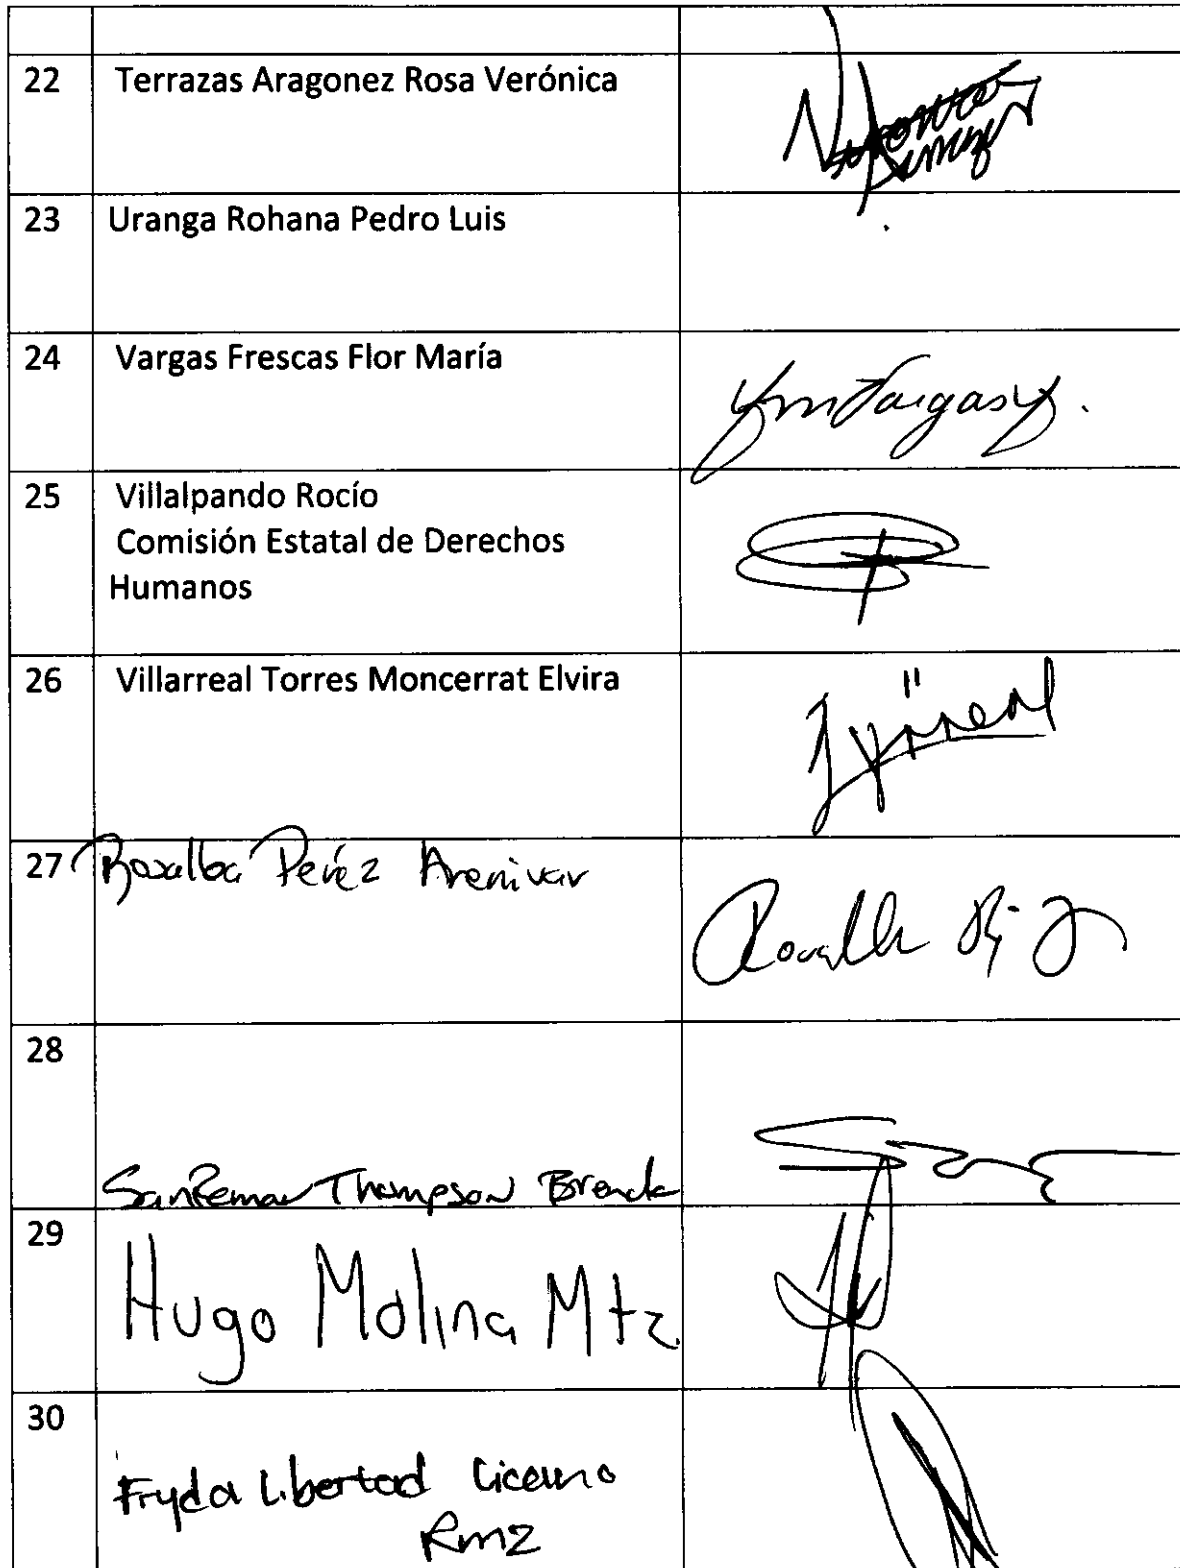 22 Terrazas Aragonez Rosa Verónica
23 Uranga Rohana Pedro Luis
24 Vargas Frescas Flor María
25 Villalpando Rocío
Comisión Estatal de Derechos
Humanos
26 Villarreal Torres Moncerrat Elvira
27 Rosalba Peréz Arenivar
28
Thompson Brenda
29
Hugo Molina Mtz
30
Fryda Libertad Licano
Rmz